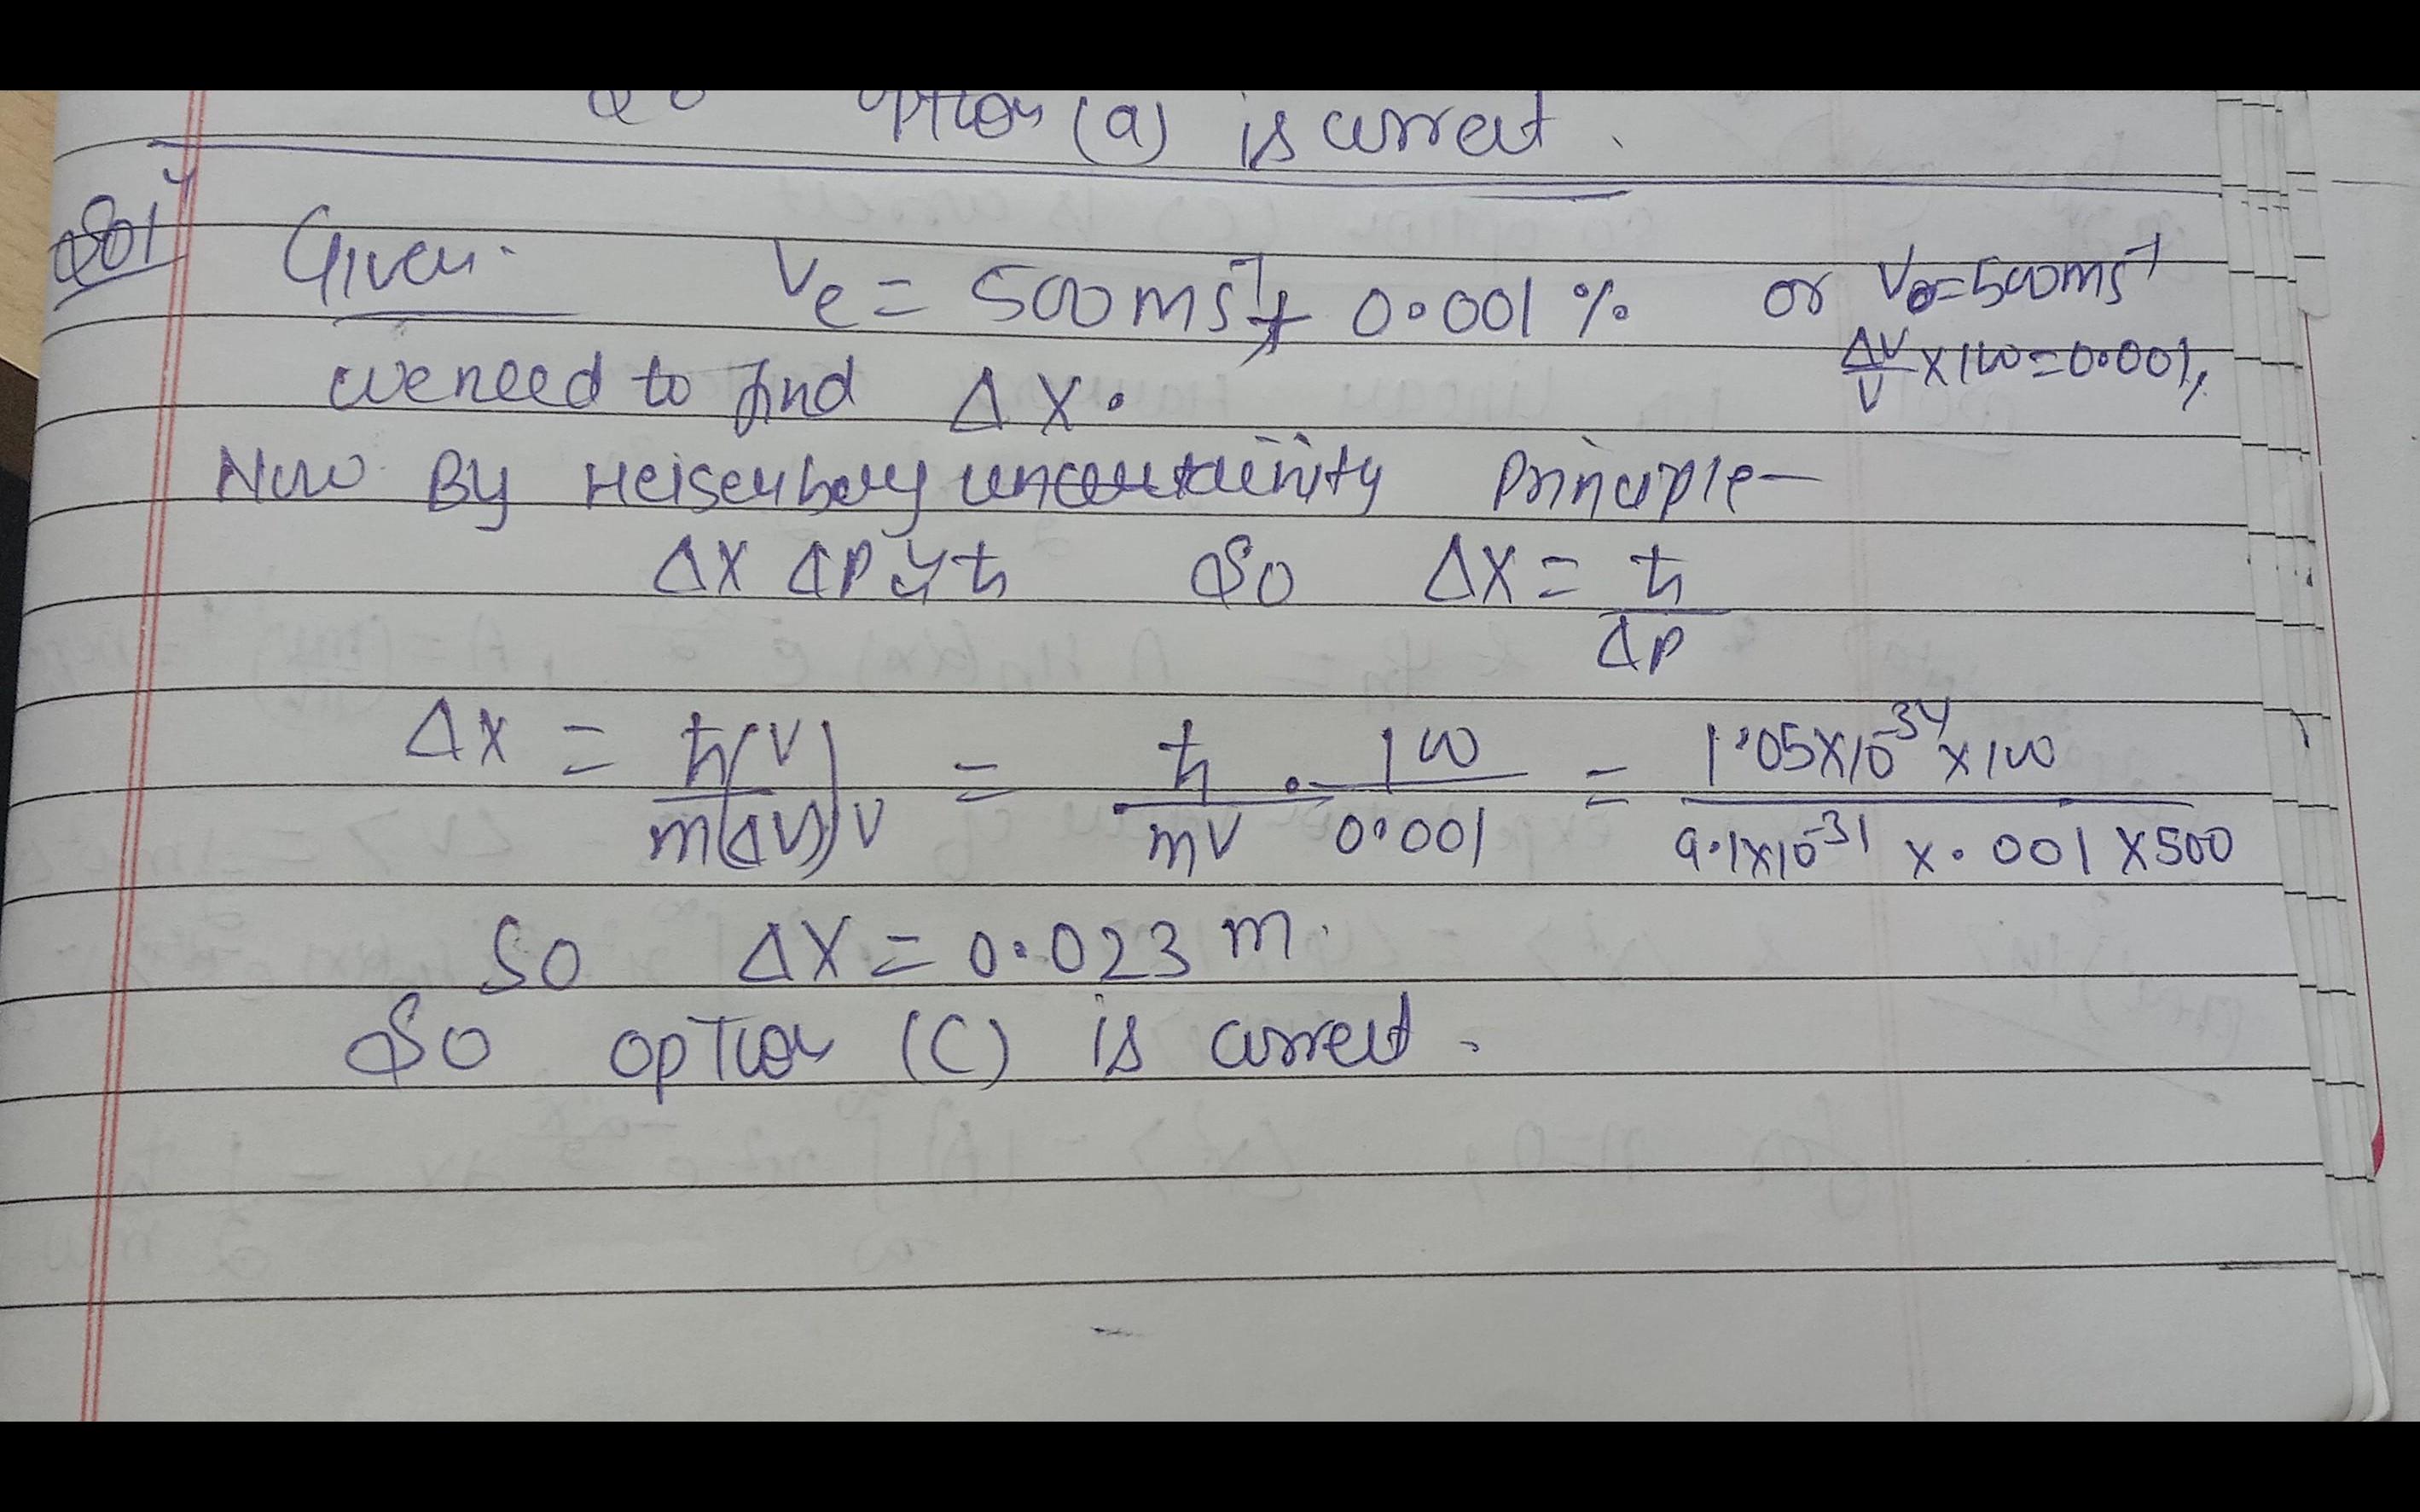 So option (a) is correct.
Sol<sup>n</sup> Given. V_e = 500 ms⁻¹ ± 0.001 % or V_e = 500 ms⁻¹
ΔV/V × 100 = 0.001%
we need to find ΔX.
Now By Heisenberg uncertainity Principle –
ΔX ΔP ≥ ħ So ΔX = ħ/ΔP
ΔX = ħ(V)/m(ΔV)V = ħ/mV · 100/0.001 = 1.05×10⁻³⁴ × 100 / 9.1×10⁻³¹ × .001 × 500
So ΔX = 0.023 m.
So option (C) is correct.